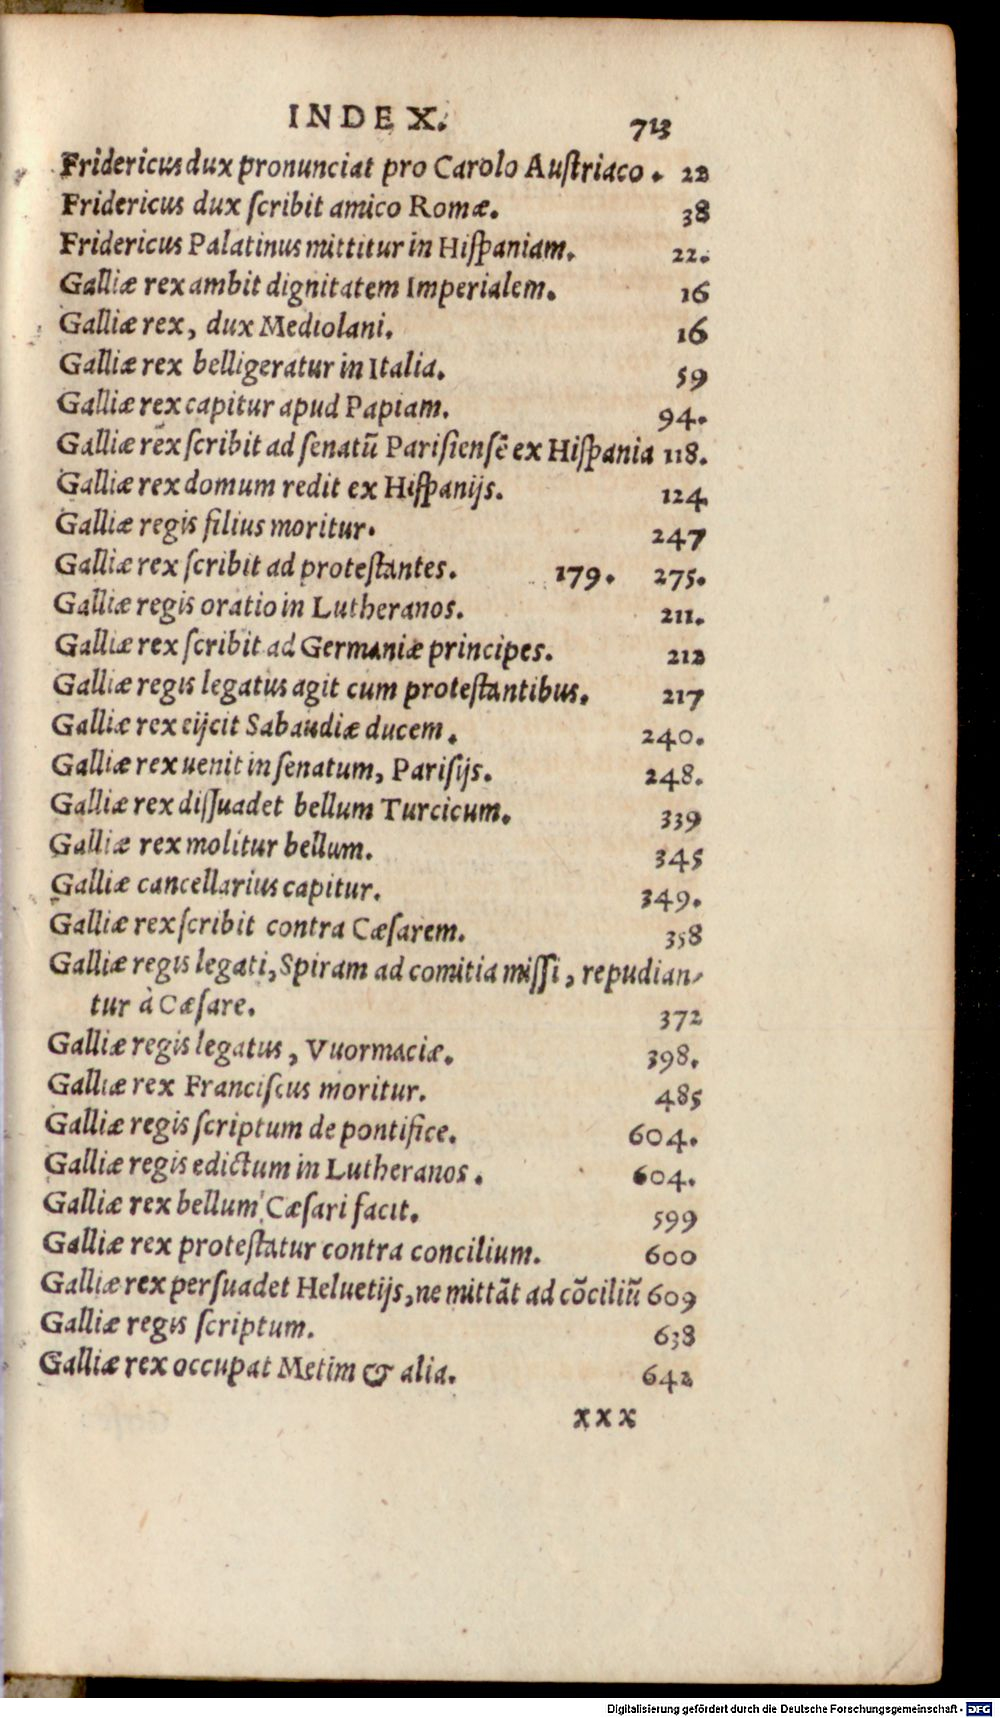 INDEX. 713
Fridericus dux pronunciat pro Carolo Austriaco. 22
Fridericus dux scribit amico Romæ. 38
Fridericus Palatinus mittitur in Hispaniam. 22.
Galliæ rex ambit dignitatem Imperialem. 16
Galliæ rex, dux Mediolani. 16
Galliæ rex belligeratur in Italia. 59
Galliæ rex capitur apud Papiam. 94.
Galliæ rex scribit ad senatũ Parisiensẽ ex Hispania 118.
Galliæ rex domum redit ex Hispanijs. 124
Galliæ regis filius moritur. 247
Galliæ rex scribit ad protestantes. 179. 275.
Galliæ regis oratio in Lutheranos. 211.
Galliæ rex scribit ad Germaniæ principes. 212
Galliæ regis legatus agit cum protestantibus. 217
Galliæ rex eijcit Sabaudiæ ducem. 240.
Galliæ rex uenit in senatum, Parisijs. 248.
Galliæ rex dissuadet bellum Turcicum. 339
Galliæ rex molitur bellum. 345
Galliæ cancellarius capitur. 349.
Galliæ rex scribit contra Cæsarem. 358
Galliæ regis legati, Spiram ad comitia missi, repudian-
tur à Cæsare. 372
Galliæ regis legatus, Vuormaciæ. 398.
Galliæ rex Franciscus moritur. 485
Galliæ regis scriptum de pontifice. 604.
Galliæ regis edictum in Lutheranos. 604.
Galliæ rex bellum Cæsari facit. 599
Galliæ rex protestatur contra concilium. 600
Galliæ rex persuadet Heluetijs, ne mittãt ad cõciliũ 609
Galliæ regis scriptum. 638
Galliæ rex occupat Metim & alia. 642
xxx
Digitalisierung gefördert durch die Deutsche Forschungsgemeinschaft - DFG